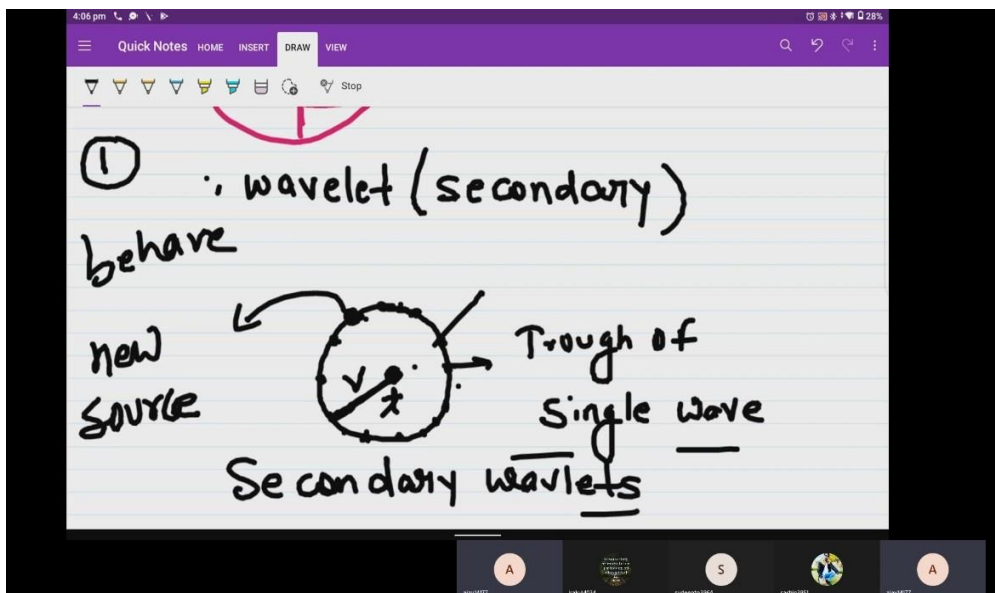 4:06 pm
28%
Quick Notes HOME INSERT DRAW VIEW
Stop
1
∵ wavelet (secondary)
behave
new
source
v
t
Trough of
single wave
Secondary wavlets
A
S
A